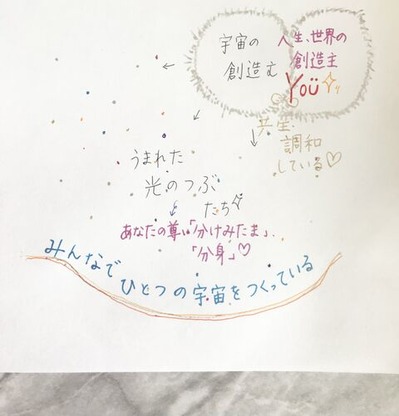 宇宙の
創造主
人生、世界の
創造主
You
共生、
調和
している♡
うまれた
光のつぶ
たち
あなたの尊い「分けみたま」、
「分身」♡
みんなで
ひとつの宇宙をつくっている